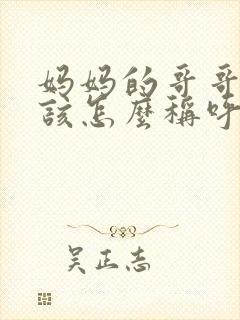 妈妈的哥哥
該怎麼稱呼
吴正志